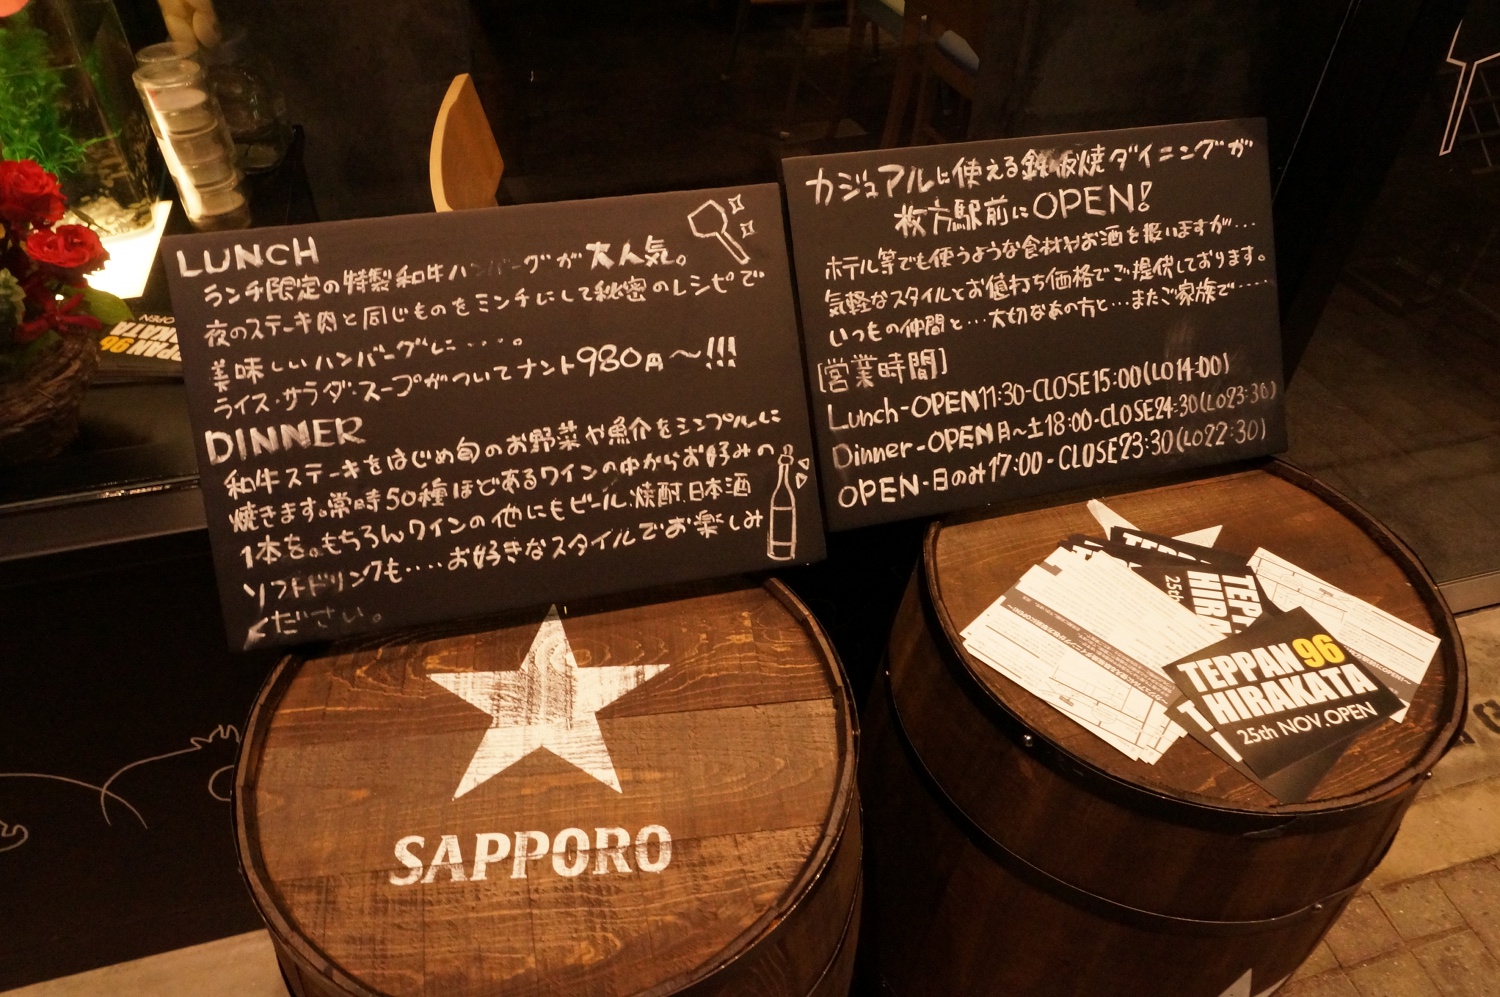 LUNCH
ランチ限定の特製和牛ハンバーグが大人気。
夜のステーキ肉と同じものをミンチにして秘密のレシピで
美味しいハンバーグに・・・・。
ライス・サラダ・スープがついてナント980円〜!!!
DINNER
和牛ステーキをはじめ旬のお野菜や魚介をシンプルに
焼きます。常時50種ほどあるワインの中からお好みの
1本を。もちろんワインの他にもビール、焼酎、日本酒
ソフトドリンクも・・・・お好きなスタイルでお楽しみ
ください。
カジュアルに使える鉄板焼ダイニングが
枚方駅前にOPEN!
ホテル等でも使うような食材やお酒を扱いますが・・・
気軽なスタイルとお値打ち価格でご提供しております。
いつもの仲間と・・・大切なあの方と・・・またご家族で・・・・・
[営業時間]
Lunch-OPEN11:30-CLOSE15:00(LO14:00)
Dinner-OPEN月〜土18:00-CLOSE24:30(LO23:30)
OPEN-日のみ17:00-CLOSE23:30(LO22:30)
SAPPORO
TEPPAN96
HIRAKATA
25th NOV.OPEN